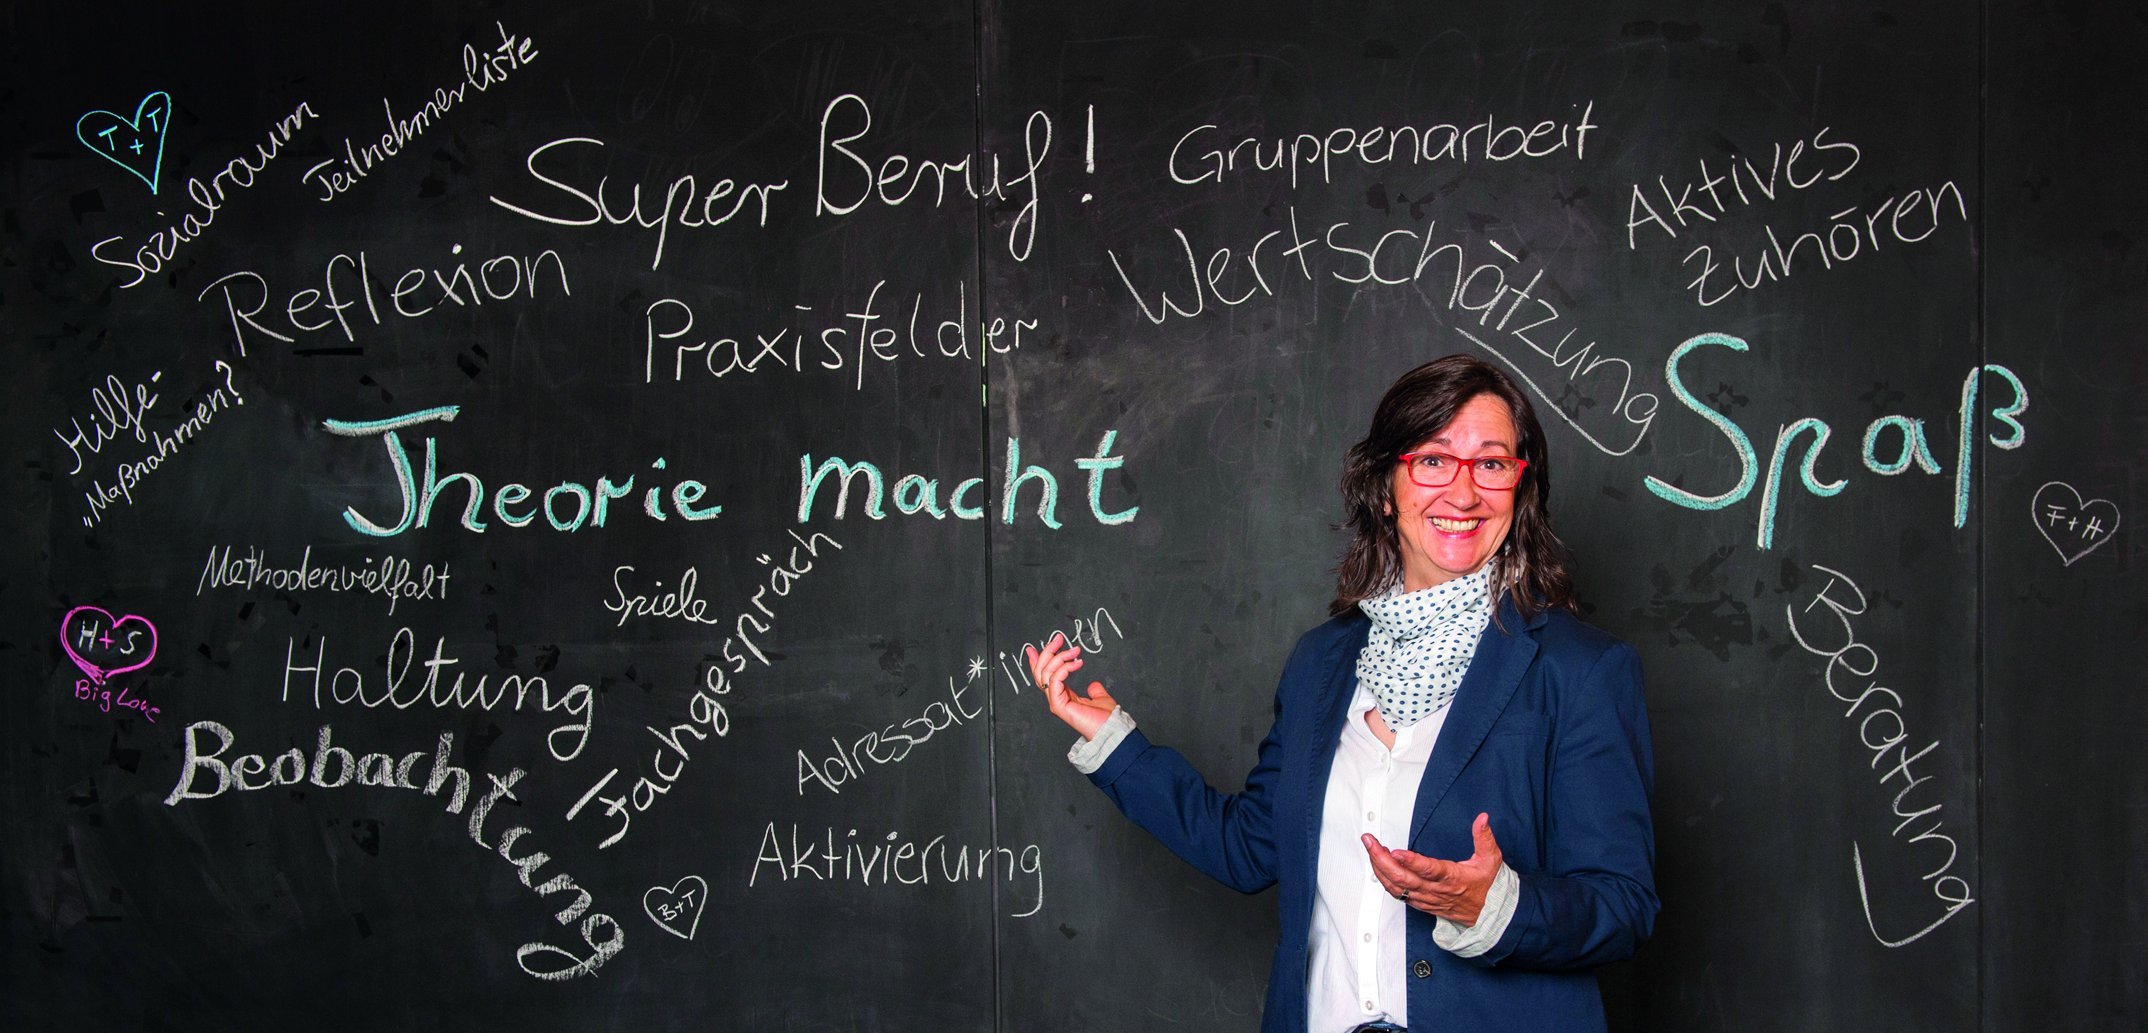 T + T
Sozialraum
Teilnehmerliste
Super Beruf!
Gruppenarbeit
Aktives
Zuhören
Reflexion
Praxisfelder
Wertschätzung
Hilfe-
"Maßnahmen?
Theorie macht Spaß
F + H
Methodenvielfalt
Spiele
Fachgespräch
H + S
Big Love
Haltung
Adressat*innen
Beratung
Beobachtung
Aktivierung
B + T